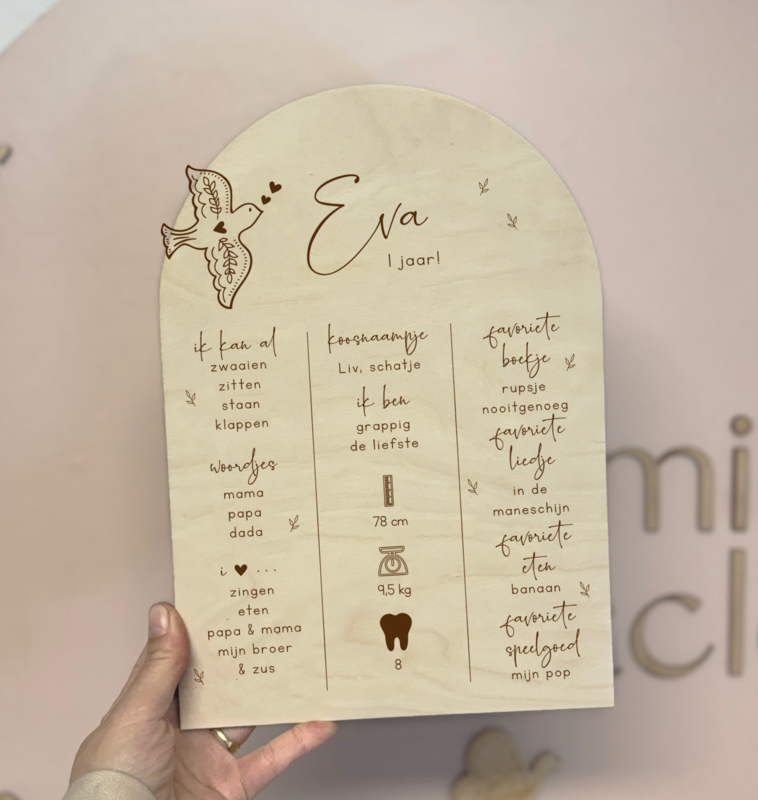 Eva
1 jaar!
ik kan al
zwaaien
zitten
staan
klappen
woordjes
mama
papa
dada
i ♥ ...
zingen
eten
papa & mama
mijn broer
& zus
koosnaampje
Liv, schatje
ik ben
grappig
de liefste
78 cm
9,5 kg
8
favoriete
boekje
rupsje
nooitgenoeg
favoriete
liedje
in de
maneschijn
favoriete
eten
banaan
favoriete
speelgoed
mijn pop
mi
cl